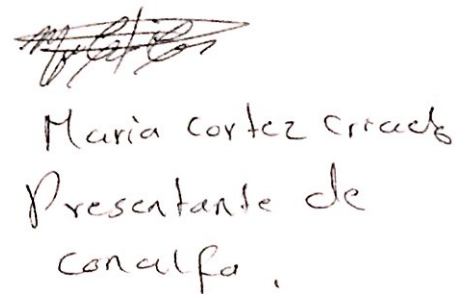 Maria Cortez Criado
Presentante de
conalfa.